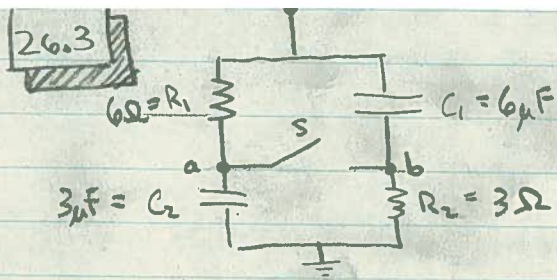 26.3
6Ω = R₁
S
C₁ = 6μF
a
b
3μF = C₂
R₂ = 3Ω